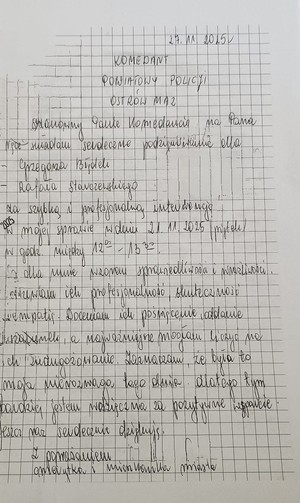 27.11 2025r
KOMEDANT
POWIATOWY POLICJI
OSTRÓW MAZ
Szanowny Panie Komendancie na Pana
ręce składam serdeczne podziękowania dla
- Grzegorza
- Rafała
za szybką i profesjonalną interwencję
w mojej sprawie w dniu 21.11.2025 (piątek)
w godz. między 12⁰⁰ - 13
Są dla mnie wzorem sprawiedliwości i wrażliwości.
ich profesjonalność skuteczność
i empatię. Doceniam ich poświęcenie, oddanie
a najważniejsze mogłam liczyć na
ich zaangażowanie. Zaznaczam, że była to
moja tego dnia. dlatego tym
bardziej jestem wdzięczna za pozytywne wsparcie
jeszcz raz serdecznie dziękuję.
Z poważaniem
i mieszkanka miasta